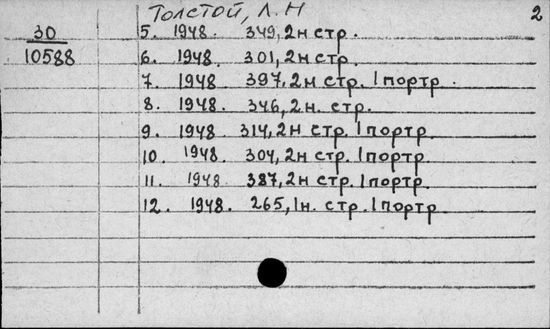 Толстой, Л. Н 2
30 5. 1948. 349, 2н стр.
10588 6. 1948. 301, 2н стр.
7. 1948. 397, 2н стр. 1 портр.
8. 1948. 346, 2н. стр.
9. 1948. 314, 2н стр. 1 портр.
10. 1948. 304, 2н стр. 1 портр.
11. 1948. 387, 2н стр. 1 портр.
12. 1948. 265, 1н. стр. 1 портр